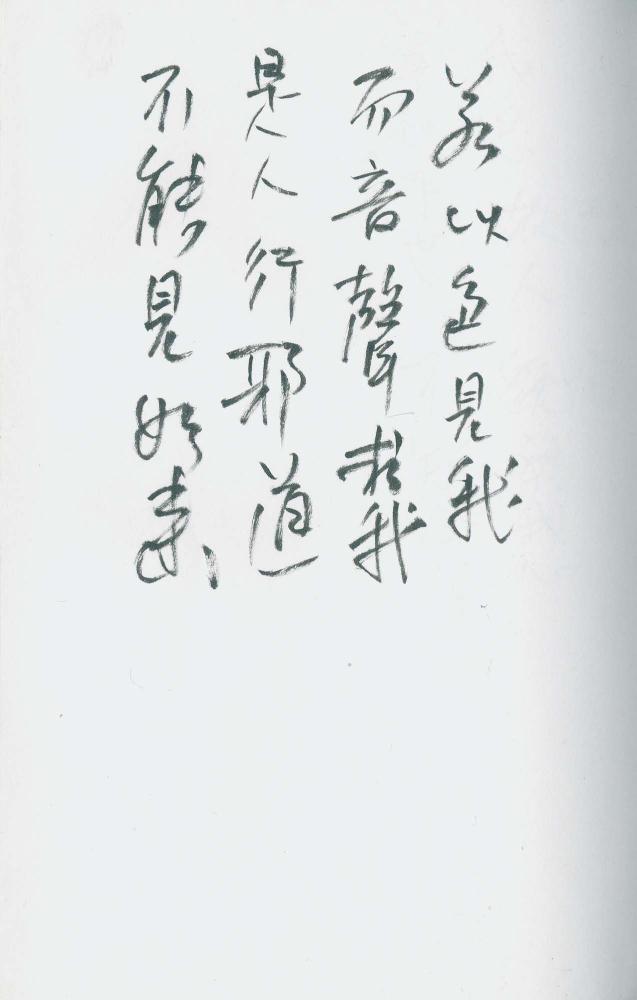 若以色見我
而音聲求我
是人行邪道
不能見如來